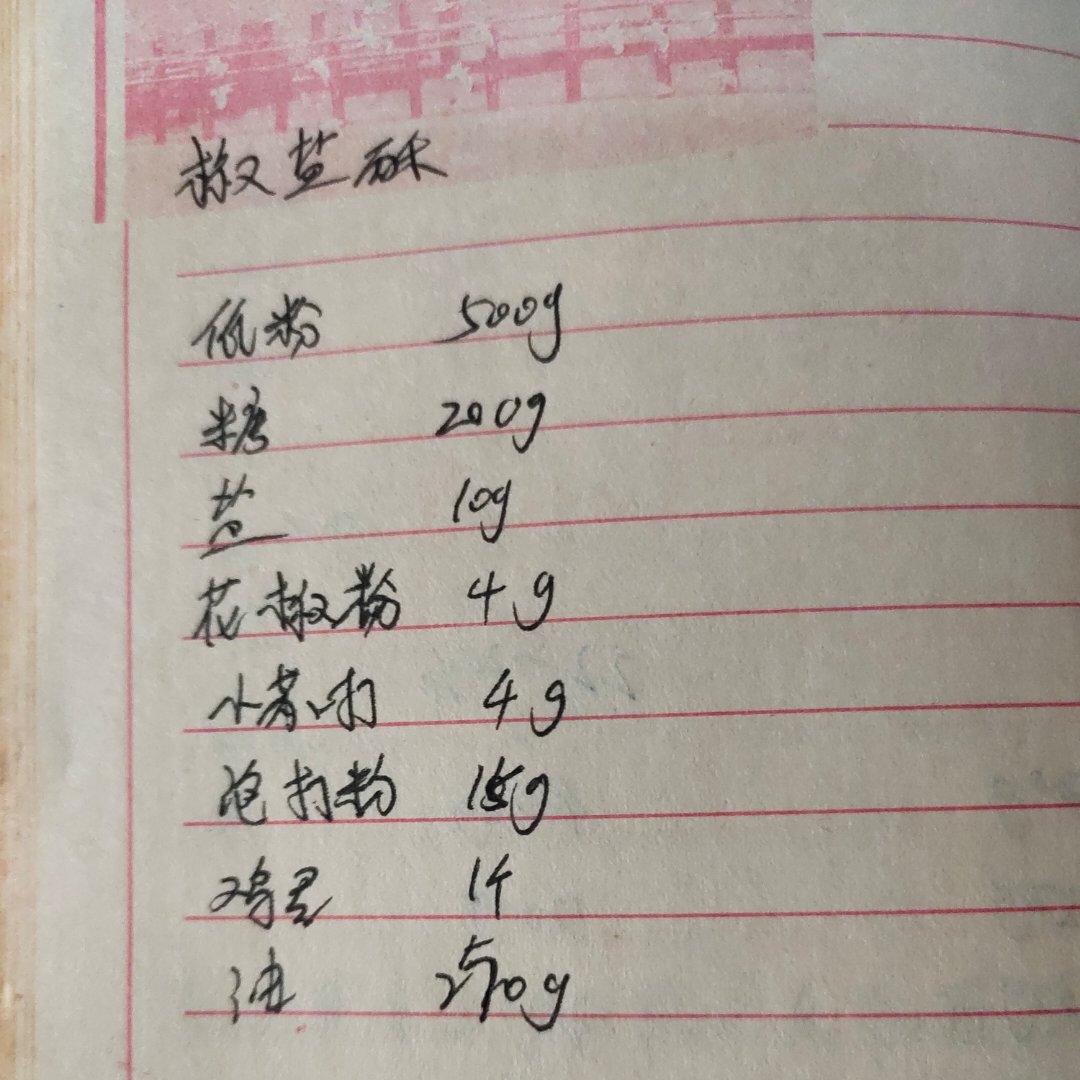 椒盐酥
低粉 500g
糖 200g
盐 10g
花椒粉 4g
小苏打 4g
泡打粉 15g
鸡蛋 1个
油 250g